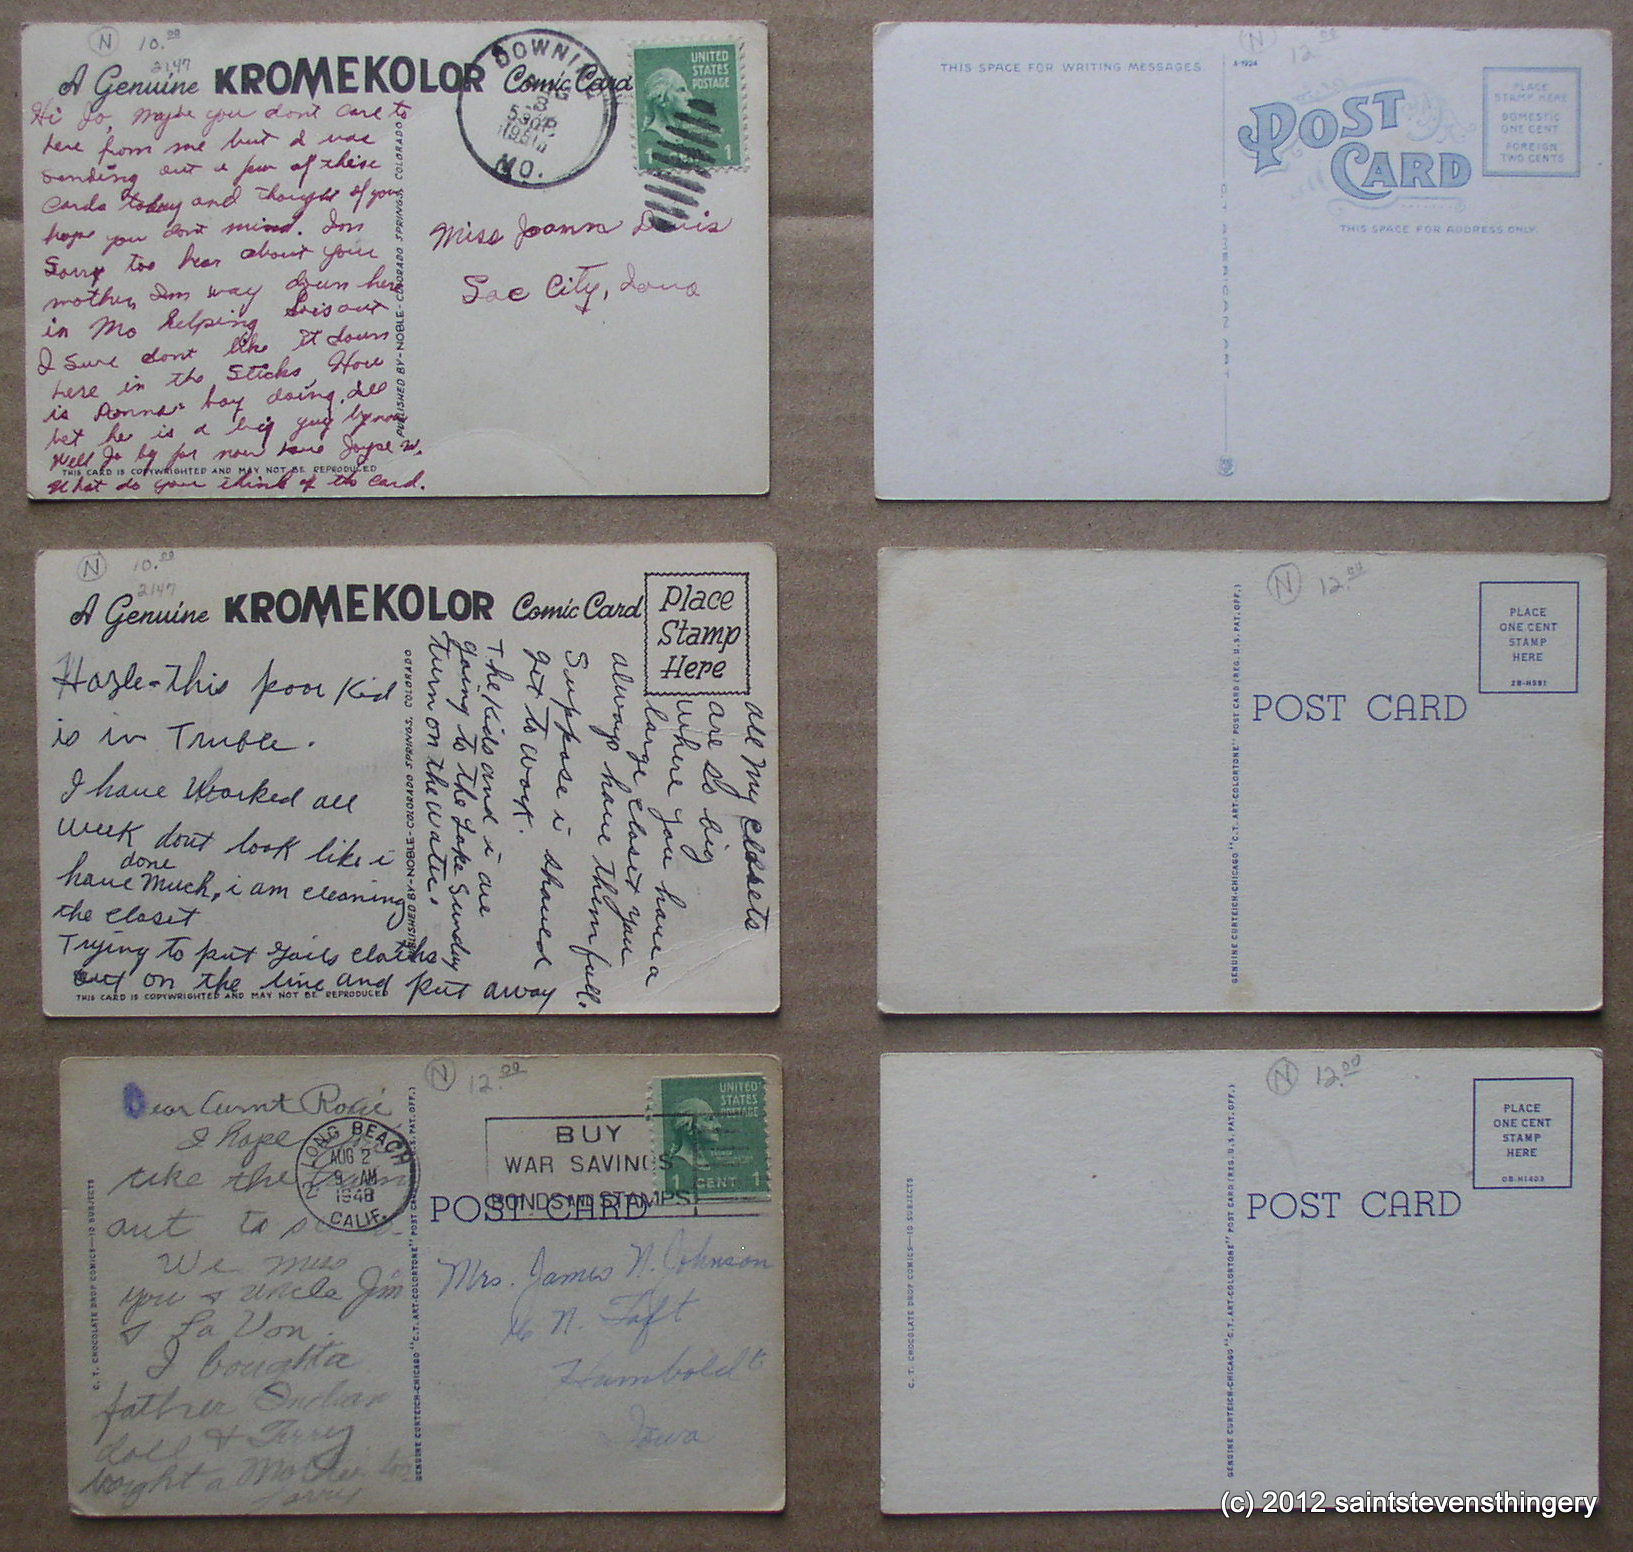 N 10.00
2147
A Genuine KROMEKOLOR Comic Card
DOWNING
AUG
3
530P
1951
MO.
UNITED
STATES
POSTAGE
1 CENT 1
Hi Jo, Maybe you dont care to
here from me but I was
sending out a few of these
cards today and thought of you
hope you dont mind. Im
Sorry too hear about your
mother, Im way down here
in Mo helping
I sure dont like it down
here in the Sticks, How
is Donnas boy doing. Ill
bet he is a big guy by now
Well Jo by for now Love Joyce W.
THIS CARD IS COPYWRIGHTED AND MAY NOT BE REPRODUCED
What do you think of the card.
PUBLISHED BY-NOBLE-COLORADO SPRINGS, COLORADO
Miss Joann Davis
Sac City, Iowa
N 12.00
THIS SPACE FOR WRITING MESSAGES
A-1924
POST
CARD
PLACE
STAMP HERE
DOMESTIC
ONE CENT
FOREIGN
TWO CENTS
THIS SPACE FOR ADDRESS ONLY.
N 10.00
2147
A Genuine KROMEKOLOR Comic Card
Place
Stamp
Here
Hazle-This poor Kid
is in Truble.
I have Worked all
week dont look like i
have done Much, i am cleaning
the closet
Trying to put Gails cloths
out on the line and put away
THIS CARD IS COPYWRIGHTED AND MAY NOT BE REPRODUCED
PUBLISHED BY-NOBLE-COLORADO SPRINGS, COLORADO
all My Clossets
are so big
where you have a
large closet you
always have them full.
Suppose i should
get to work.
The Kids and i are
going to the Lake Sunday
turn on the water.
N 12.00
PLACE
ONE CENT
STAMP
HERE
2B-H591
POST CARD
GENUINE CURTEICH-CHICAGO "C.T. ART-COLORTONE" POST CARD (REG. U.S. PAT. OFF.)
N 12.00
Dear Aunt Roxie
I hope
take the train
out to
We miss
you & uncle Jim
& La Von.
I bought a
father Indian
doll & Terry
bought a Mother
Larry
C. T. CHOCOLATE DROP COMICS-10 SUBJECTS
GENUINE CURTEICH-CHICAGO "C.T. ART-COLORTONE" POST CARD (REG. U.S. PAT. OFF.)
LONG BEACH
AUG 2
9 AM
1948
CALIF.
BUY
WAR SAVINGS
BONDS AND STAMPS
UNITED
STATES
POSTAGE
1 CENT 1
POST CARD
Mrs. James N. Johnson
N. Taft
Humboldt
Iowa
N 12.00
PLACE
ONE CENT
STAMP
HERE
0B-H1403
POST CARD
C. T. CHOCOLATE DROP COMICS-10 SUBJECTS
GENUINE CURTEICH-CHICAGO "C.T. ART-COLORTONE" POST CARD (REG. U.S. PAT. OFF.)
(c) 2012 saintstevensthingery